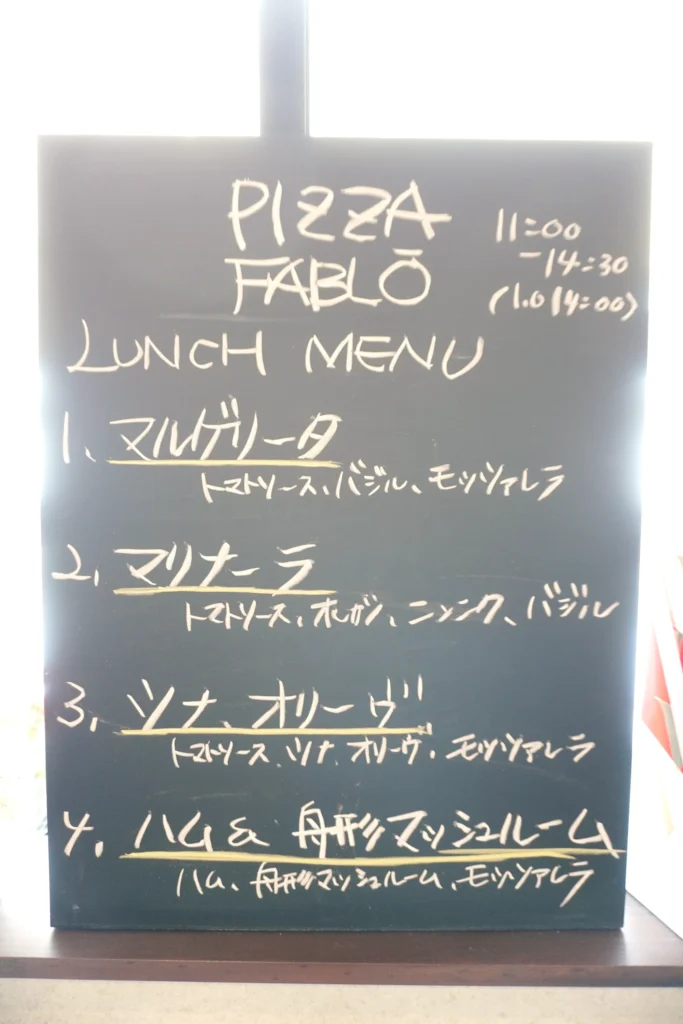 PIZZA
FABLŌ
11:00
-14:30
(L.O 14:00)
LUNCH MENU
1、マルゲリータ
トマトソース、バジル、モッツァレラ
2、マリナーラ
トマトソース、オレガノ、ニンニク、バジル
3、ツナ、オリーヴ
トマトソース、ツナ、オリーヴ、モッツァレラ
4、ハム & 舟形マッシュルーム
ハム、舟形マッシュルーム、モッツァレラ